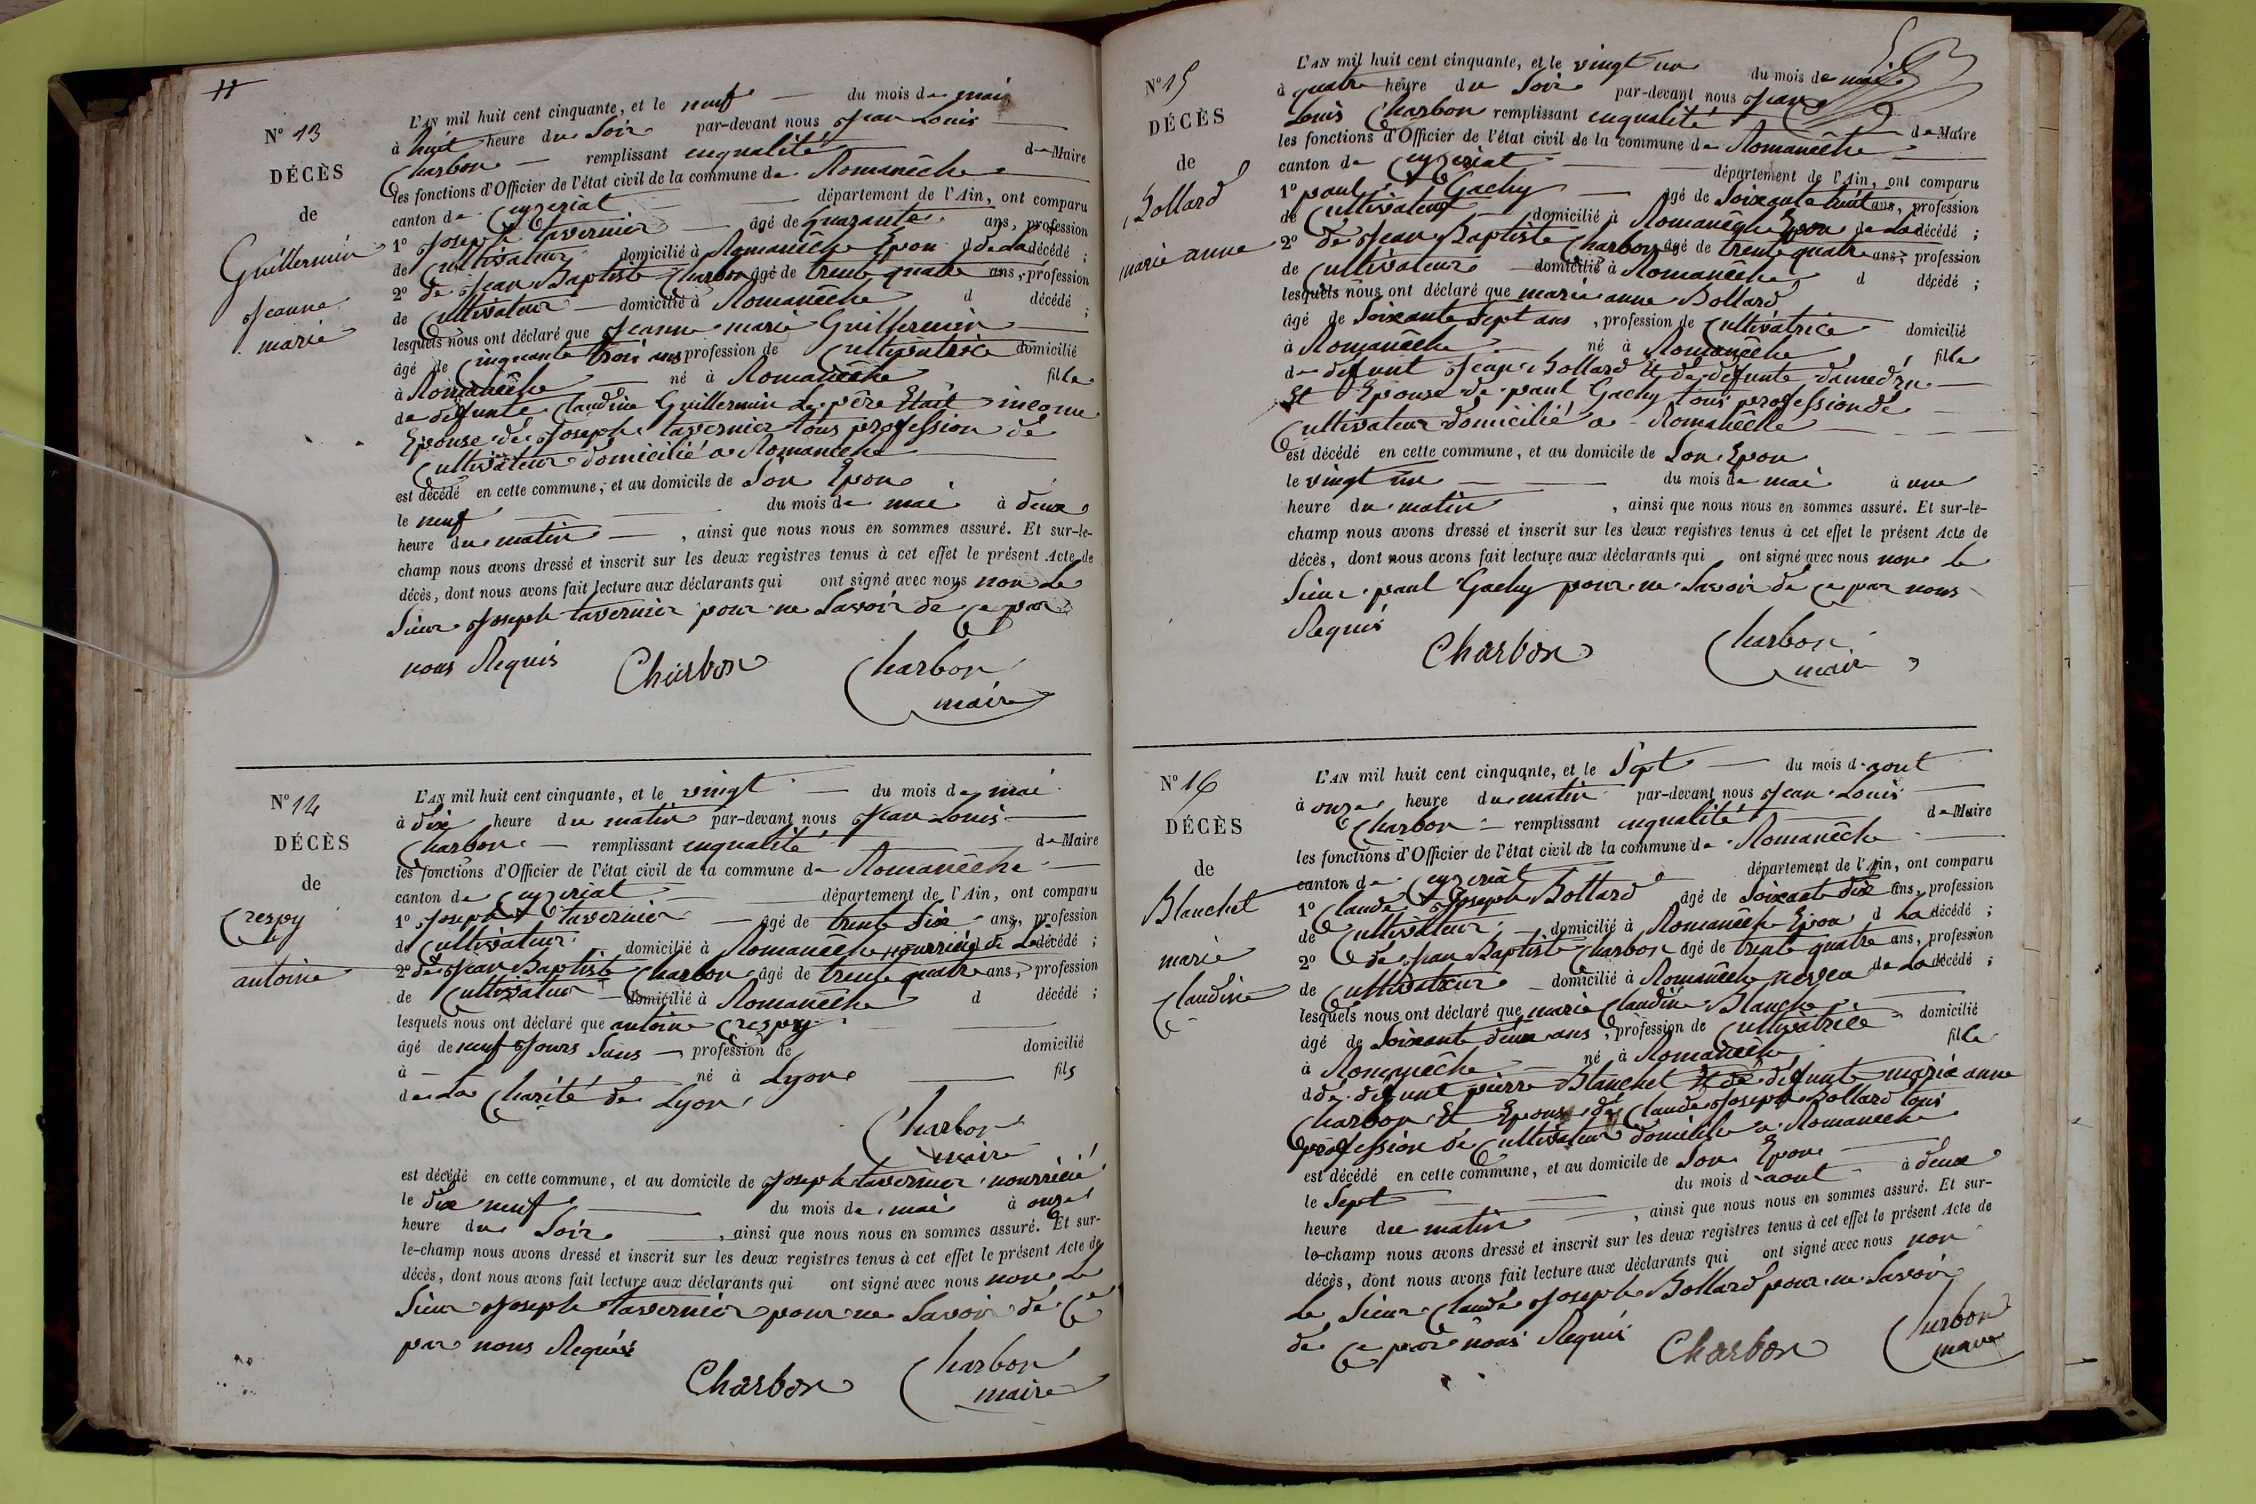 11
N° 13
DÉCÈS
de
Guillermin
Jeanne
marie
L'AN mil huit cent cinquante, et le neuf — du mois de mai
à huit heure du Soir par-devant nous Jean Louis
Charbon — remplissant enqualité de Maire
les fonctions d'Officier de l'état civil de la commune de Romanêche
canton de Ceyzeriat département de l'Ain, ont comparu
1° Joseph tavernier — âgé de quarante ans, profession
de Cultivateur domicilié à Romanêche Epou d de La décédé ;
2° de Jean Baptiste Charbon âgé de trente quatre ans, profession
de Cultivateur — domicilié à Romanêche d décédé ;
lesquels nous ont déclaré que Jeanne marie Guillermin
âgé de Cinquante trois ans profession de Cultivatrice domicilié
à Romanêche — né à Romanêche fille
de défunte Claudine Guillermin Le père Etait inconu
Epouse de Joseph tavernier tous profession de
Cultivateur domicilié a Romaneche
est décédé en cette commune, et au domicile de Son Epou
le neuf — du mois de mai à deux
heure du matin — , ainsi que nous nous en sommes assuré. Et sur-le-
champ nous avons dressé et inscrit sur les deux registres tenus à cet effet le présent Acte de
décès, dont nous avons fait lecture aux déclarants qui ont signé avec nous non Le
Sieur Joseph tavernier pour ne Savoir de Ce par
nous Requis Charbon Charbon
maire
N° 14
DÉCÈS
de
Crespy
antoine
L'AN mil huit cent cinquante, et le vingt — du mois de mai
à dix heure du matin par-devant nous Jean Louis
Charbon — remplissant enqualité de Maire
les fonctions d'Officier de l'état civil de la commune de Romanêche
canton de Ceyzeriat département de l'Ain, ont comparu
1° Joseph tavernier — âgé de trente Six ans, profession
de Cultivateur domicilié à Romanêche nourricié de Le décédé ;
2° de Jean Baptiste Charbon âgé de trente quatre ans, profession
de Cultivateur — domicilié à Romanêche d décédé ;
lesquels nous ont déclaré que antoine Crespy
âgé de neuf Jours Sans — profession de domicilié
à — né à Lyon fils
de La Charité de Lyon
Charbon
maire
est décédé en cette commune, et au domicile de Joseph tavernier nourricié
le dix neuf — du mois de mai à onze
heure du Soir — , ainsi que nous nous en sommes assuré. Et sur-
le-champ nous avons dressé et inscrit sur les deux registres tenus à cet effet le présent Acte de
décès, dont nous avons fait lecture aux déclarants qui ont signé avec nous non Le
Sieur Joseph tavernier pour ne Savoir de Ce
par nous Requis
Charbon Charbon
maire
N° 15
DÉCÈS
de
Bollard
marie anne
L'AN mil huit cent cinquante, et le vingt un du mois de mai
à quatre heure du Soir par-devant nous Jean
Louis Charbon remplissant enqualité de Maire
les fonctions d'Officier de l'état civil de la commune de Romanêche
canton de Ceyzeriat — département de l'Ain, ont comparu
1° paul Gachy — âgé de Soixante huit ans, profession
de Cultivateur — domicilié à Romanêche Epou de La décédé ;
2° de Jean Baptiste Charbon âgé de trente quatre ans, profession
de Cultivateur — domicilié à Romanêche d décédé ;
lesquels nous ont déclaré que marie anne Bollard
âgé de Soixante Sept ans , profession de Cultivatrice domicilié
à Romanêche — né à Romanêche fille
de défunt Jean Bollard Et de défunte
Et Epouse de paul Gachy tous profession de
Cultivateur domicilié a Romanêche
est décédé en cette commune, et au domicile de Son Epou
le vingt un — du mois de mai à une
heure du matin , ainsi que nous nous en sommes assuré. Et sur-le-
champ nous avons dressé et inscrit sur les deux registres tenus à cet effet le présent Acte de
décès, dont nous avons fait lecture aux déclarants qui ont signé avec nous non Le
Sieur paul Gachy pour ne Savoir de Ce par nous
Requis
Charbon Charbon
maire
N° 16
DÉCÈS
de
Blanchet
marie
Claudine
L'AN mil huit cent cinquante, et le Sept — du mois d'aout
à onze heure du matin par-devant nous Jean Louis
Charbon — remplissant enqualité de Maire
les fonctions d'Officier de l'état civil de la commune de Romanêche
canton de Ceyzeriat département de l'Ain, ont comparu
1° Claude Joseph Bollard âgé de Soixante dix ans, profession
de Cultivateur — domicilié à Romanêche Epou d La décédé ;
2° de Jean Baptiste Charbon âgé de trente quatre ans, profession
de Cultivateur — domicilié à Romanêche neveu de La décédé ;
lesquels nous ont déclaré que marie Claudine Blanchet
âgé de Soixante deux ans , profession de Cultivatrice domicilié
à Romanêche — né à Romanêche fille
d de défunt pierre Blanchet Et de défunte marie anne
Charbon Et Epouse de Claude Joseph Bollard tous
profession de Cultivateur domicilié a Romaneche
est décédé en cette commune, et au domicile de Son Epou
le Sept — du mois d'aout à deux
heure du matin — , ainsi que nous nous en sommes assuré. Et sur-
le-champ nous avons dressé et inscrit sur les deux registres tenus à cet effet le présent Acte de
décès, dont nous avons fait lecture aux déclarants qui ont signé avec nous non
Le Sieur Claude Joseph Bollard pour ne Savoir
de Ce par nous Requis Charbon Charbon
maire